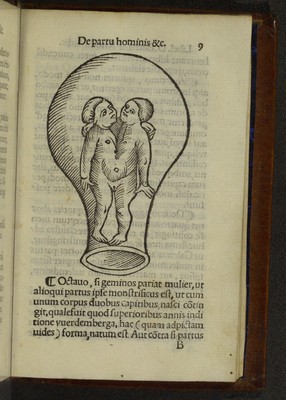 De partu hominis &c. 9
¶ Octauo, si geminos pariat mulier, ut
alioqui partus ipse monstrificus est, ut cum
unum corpus duobus capitibus, nasci cõtin
git, quale fuit quod superioribus annis in di
tione vuerdemberga, hac (quam adpictam
uides) forma, natum est. Aut cõtra si partus
B